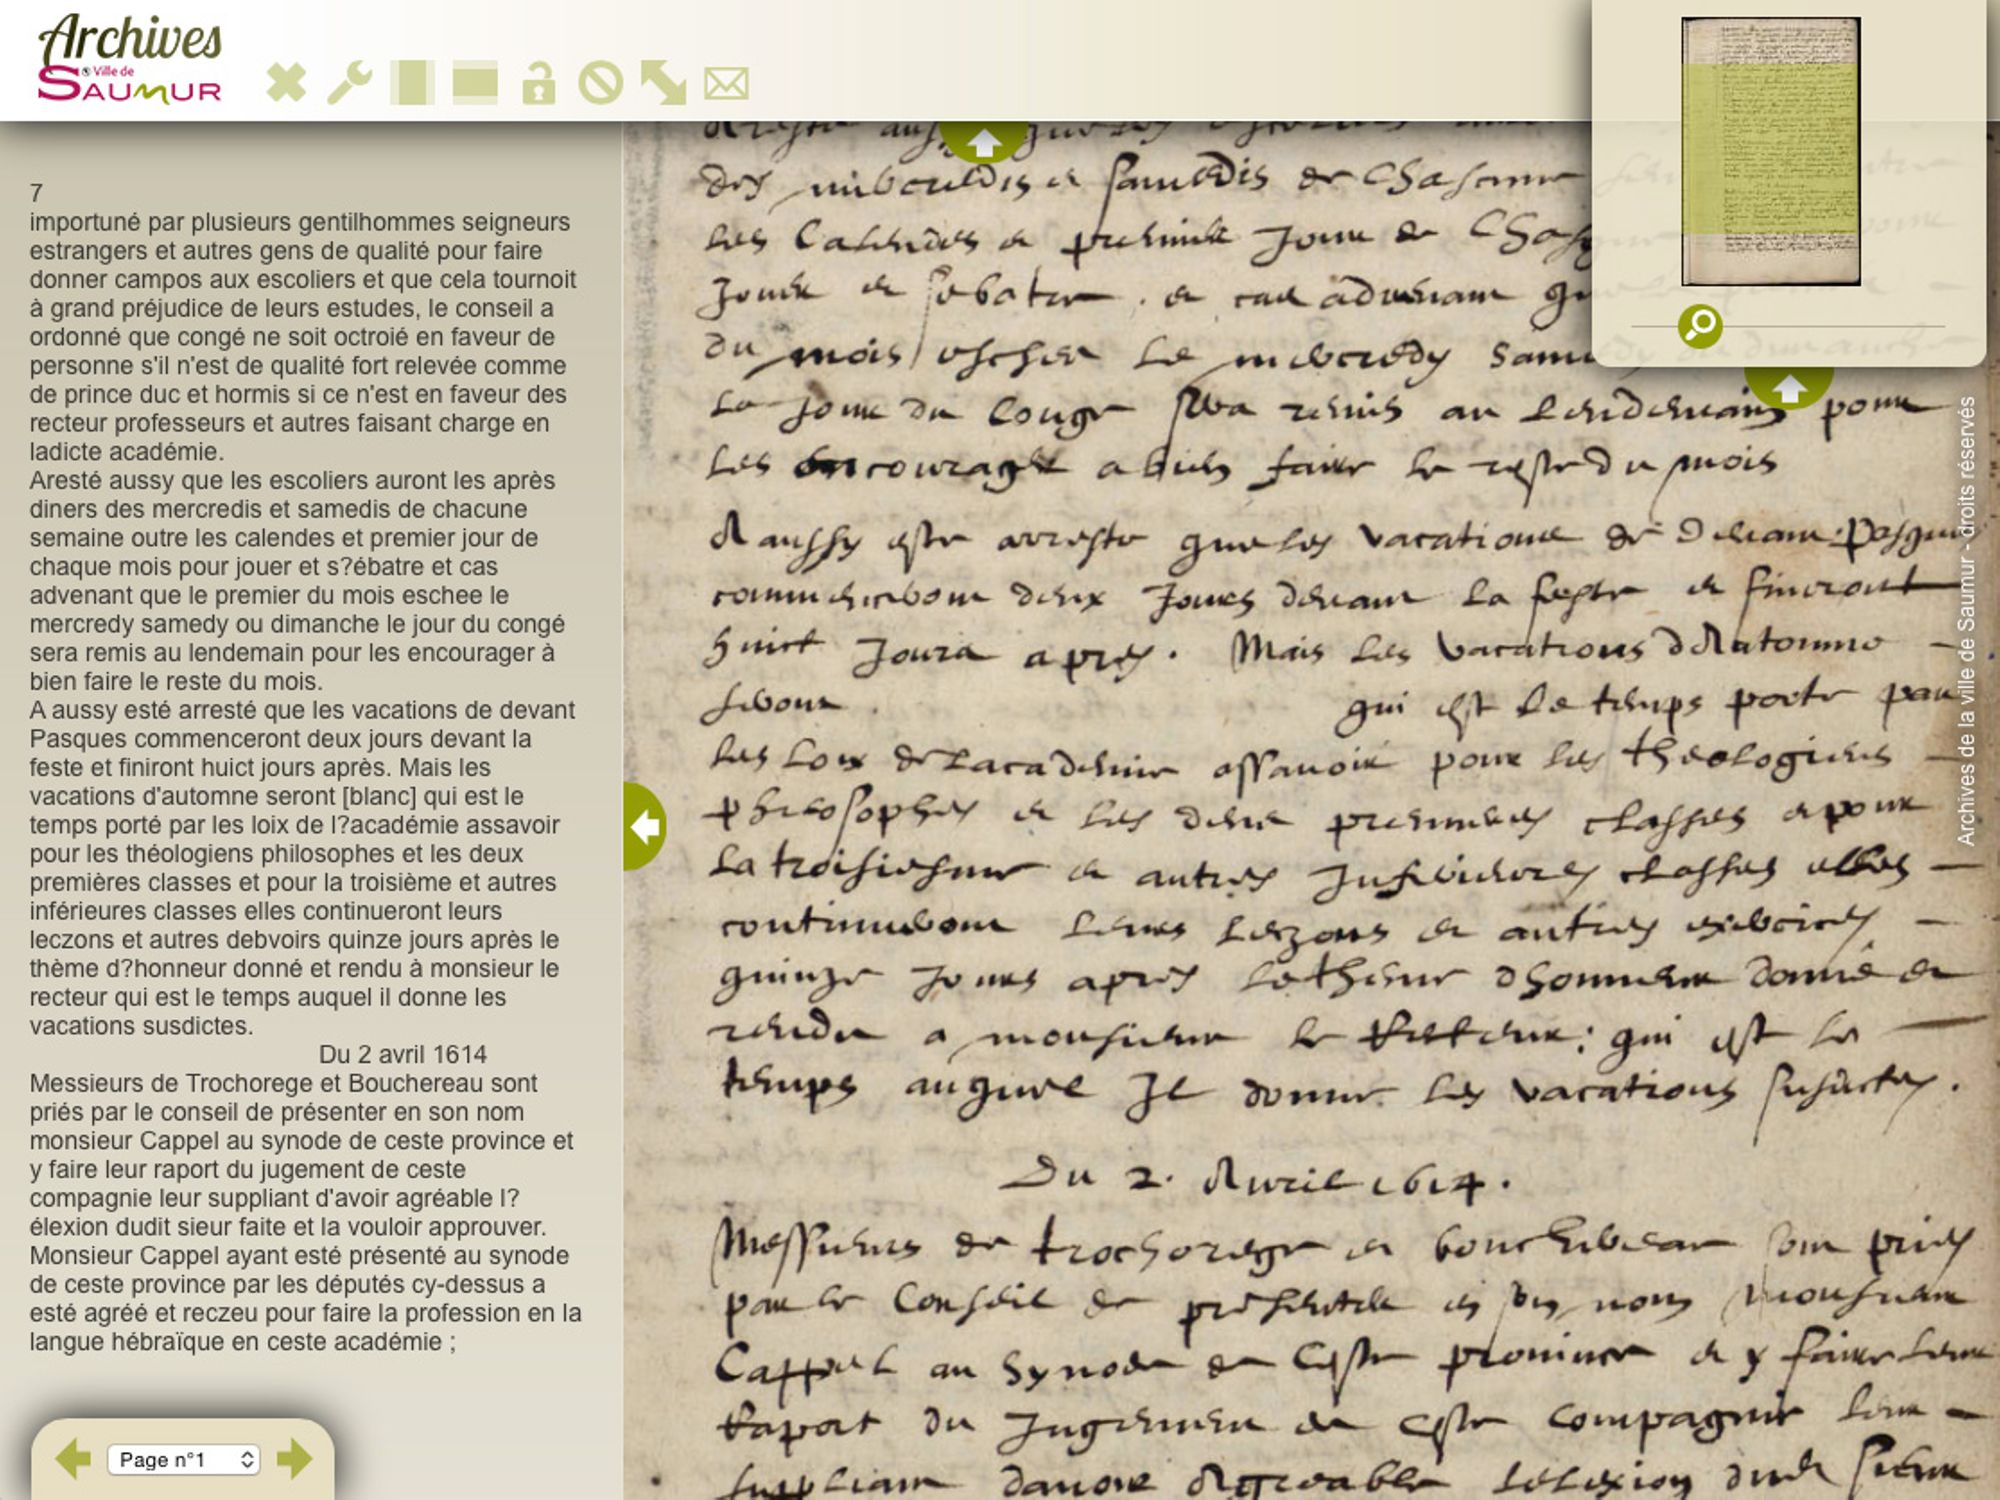 Archives
Ville de
SAUMUR
7
importuné par plusieurs gentilhommes seigneurs
estrangers et autres gens de qualité pour faire
donner campos aux escoliers et que cela tournoit
à grand préjudice de leurs estudes, le conseil a
ordonné que congé ne soit octroié en faveur de
personne s'il n'est de qualité fort relevée comme
de prince duc et hormis si ce n'est en faveur des
recteur professeurs et autres faisant charge en
ladicte académie.
Aresté aussy que les escoliers auront les après
diners des mercredis et samedis de chacune
semaine outre les calendes et premier jour de
chaque mois pour jouer et s?ébatre et cas
advenant que le premier du mois eschee le
mercredy samedy ou dimanche le jour du congé
sera remis au lendemain pour les encourager à
bien faire le reste du mois.
A aussy esté arresté que les vacations de devant
Pasques commenceront deux jours devant la
feste et finiront huict jours après. Mais les
vacations d'automne seront [blanc] qui est le
temps porté par les loix de l?académie assavoir
pour les théologiens philosophes et les deux
premières classes et pour la troisième et autres
inférieures classes elles continueront leurs
leczons et autres debvoirs quinze jours après le
thème d?honneur donné et rendu à monsieur le
recteur qui est le temps auquel il donne les
vacations susdictes.
Du 2 avril 1614
Messieurs de Trochorege et Bouchereau sont
priés par le conseil de présenter en son nom
monsieur Cappel au synode de ceste province et
y faire leur raport du jugement de ceste
compagnie leur suppliant d'avoir agréable l?
élexion dudit sieur faite et la vouloir approuver.
Monsieur Cappel ayant esté présenté au synode
de ceste province par les députés cy-dessus a
esté agréé et reczeu pour faire la profession en la
langue hébraïque en ceste académie ;
Page n°1
des mercredis et samedis de Chascune
les Calendes et premier Jour de
Jouer et sebatre . et cas advenant
du mois eschee le mercredy
Le Jour du Conge sera remis au Lendemain pour
Les encourager a bien faire le reste du mois
A aussy este arreste que les vacations de devant Pasques
commenceront deux Jours devant La feste et finiront
huict Jours apres. Mais les vacations dAutomne
seront qui est Le temps porte par
les Loix de Lacademie assavoir pour les theologiens
philosophes et les deux premieres classes et pour
La troisiesme et autres Inferieures classes elles
continueront Leurs Leczons et autres exercices
quinze Jours apres Le theme dhonneur donné et
rendu a monsieur le Recteur: qui est le
temps auquel Il donne les vacations susdictes.
Du 2. Avril 1614.
Messieurs de trochorege et bouchereau sont priés
par le Conseil de presenter en son nom monsieur
Cappel au Synode de Ceste province et y faire Leur
Raport du Jugement de Ceste Compagnie Leur
suppliant davoir Agreable Lelexion dudit sieur
Archives de la ville de Saumur - droits réservés